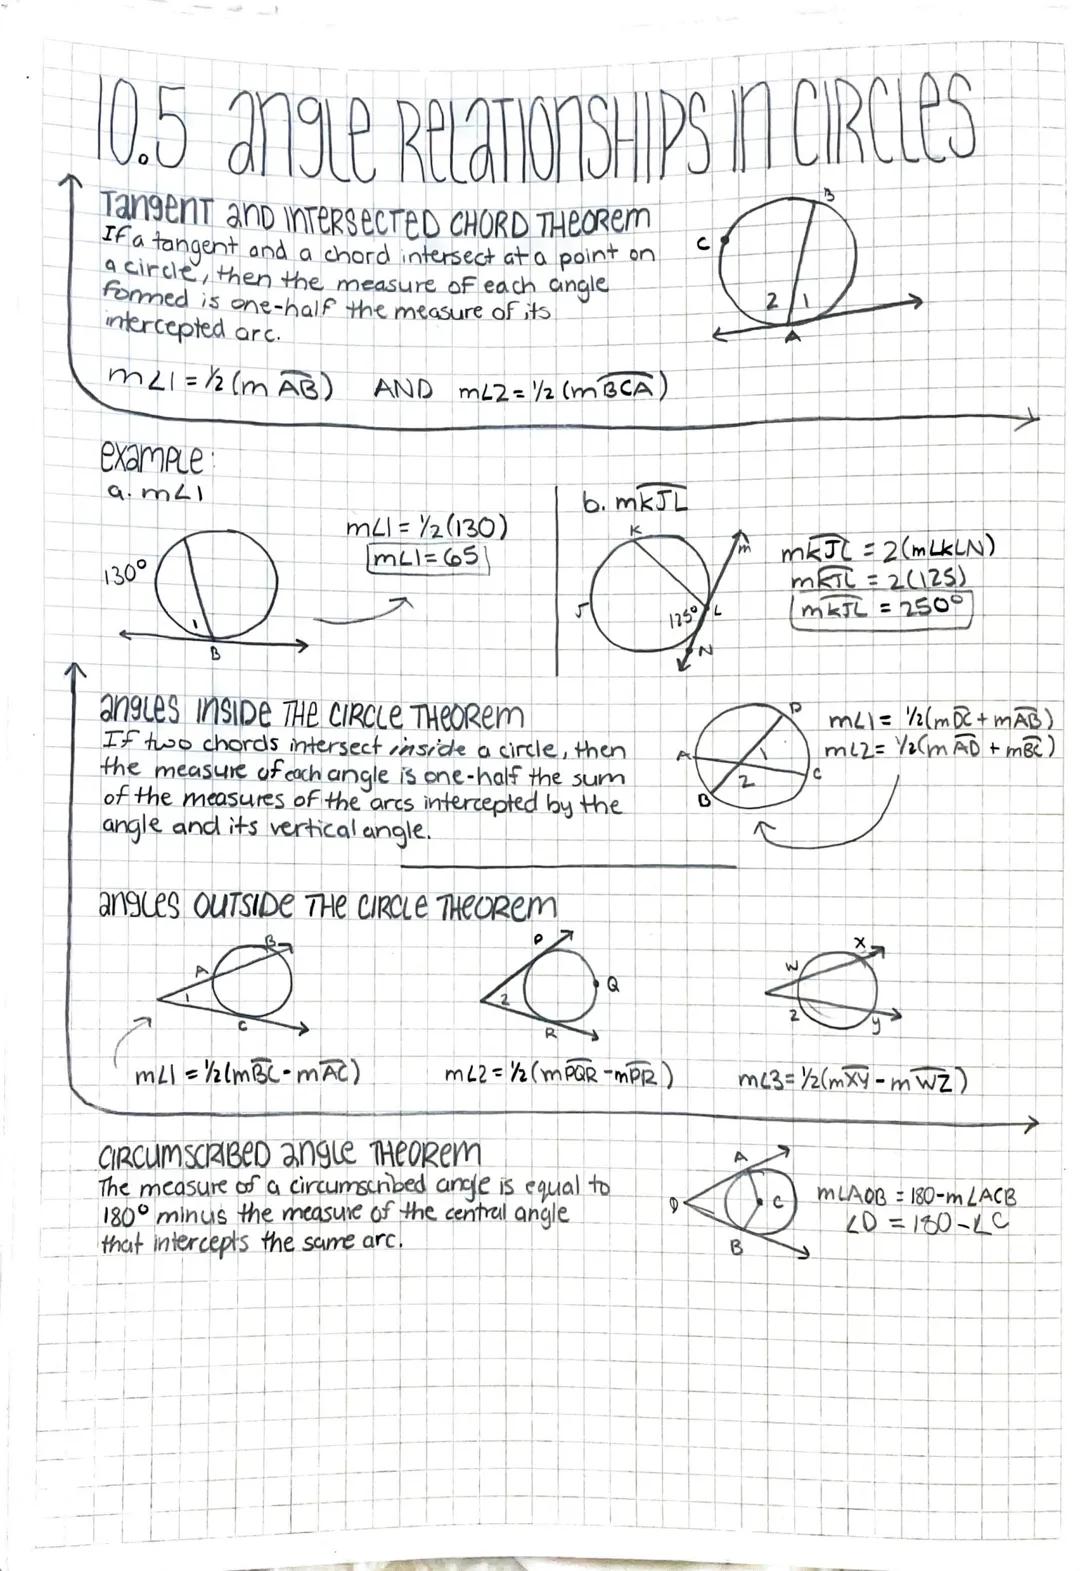 10.5 angle Relationships in Circles
Tangent and Intersected Chord Theorem
If a tangent and a chord intersect at a point on
a circle, then the measure of each angle
formed is one-half the measure of its
intercepted arc.
B
C
2
1
A
m∠1 = ½(m AB) AND m∠2 = ½ (m BCA)
example:
a. m∠1
130°
1
B
m∠1 = ½(130)
m∠1 = 65
b. mKJL
K
m
J
125°
L
N
mKJL = 2(m∠KLN)
mKJL = 2(125)
mKJL = 250°
angles inside the circle theorem
If two chords intersect inside a circle, then
the measure of each angle is one-half the sum
of the measures of the arcs intercepted by the
angle and its vertical angle.
D
A
1
2
C
B
m∠1 = ½(mDC + mAB)
m∠2 = ½(mAD + mBC)
angles outside the circle theorem
B
A
1
C
P
Q
2
R
X
W
Z
y
m∠1 = ½(mBC - mAC)
m∠2 = ½(mPQR - mPR)
m∠3 = ½(mXY - mWZ)
Circumscribed angle Theorem
The measure of a circumscribed angle is equal to
180° minus the measure of the central angle
that intercepts the same arc.
A
D
C
B
m∠ADB = 180 - m∠ACB
∠D = 180 - ∠C